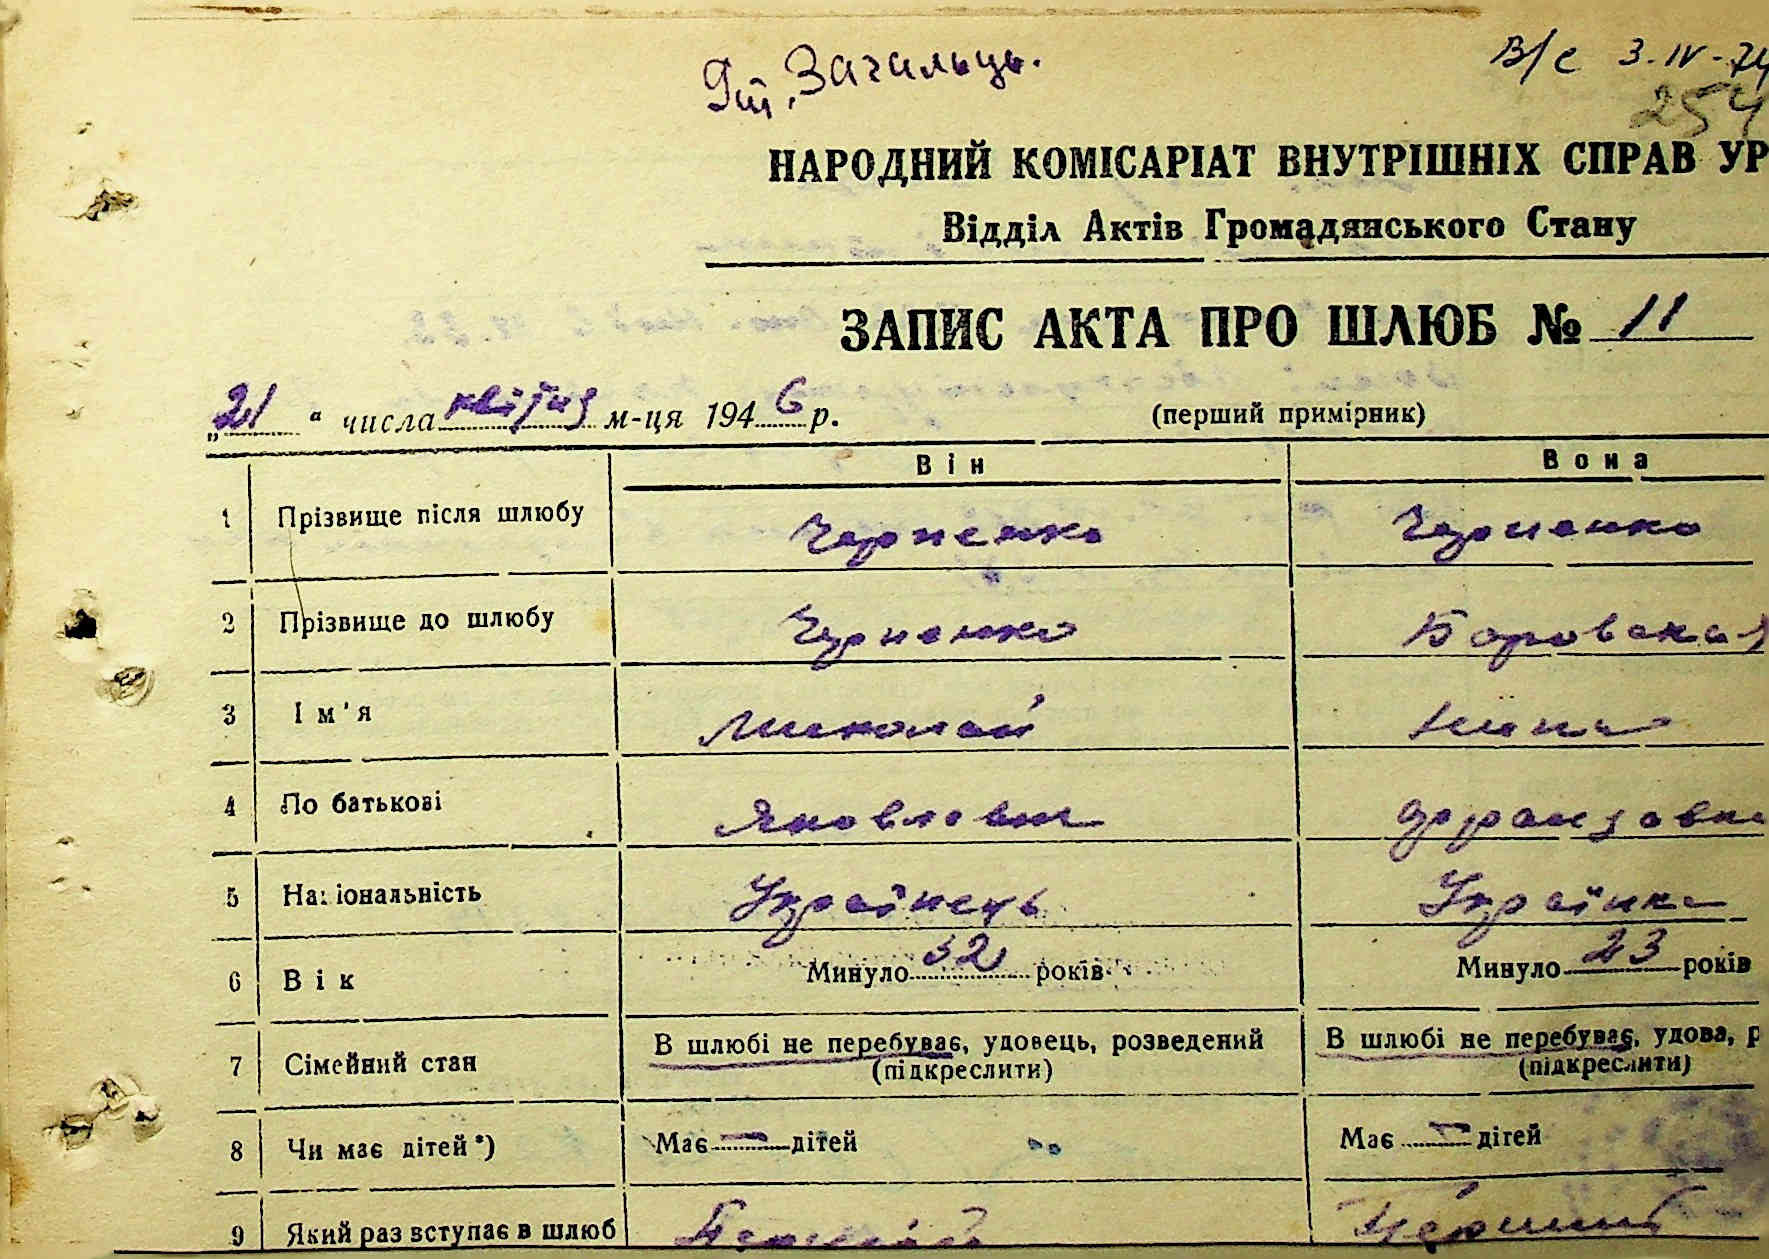 В/с 3-IV-74
254
НАРОДНИЙ КОМІСАРІАТ ВНУТРІШНІХ СПРАВ УР
Відділ Актів Громадянського Стану
ЗАПИС АКТА ПРО ШЛЮБ № 11
„21“ числа квітня м-ця 1946 р. (перший примірник)
Він Вона
1 Прізвище після шлюбу Черненко Черненко
2 Прізвище до шлюбу Черненко Боровская
3 Ім'я Миколай Нина
4 По батькові Яковлевич Францовна
5 Національність Українець Українка
6 Вік Минуло 32 років Минуло 23 років
7 Сімейний стан В шлюбі не перебуває, удовець, розведений В шлюбі не перебуває, удова, р
(підкреслити) (підкреслити)
8 Чи має дітей*) Має — дітей Має — дітей
9 Який раз вступає в шлюб Перший Перший